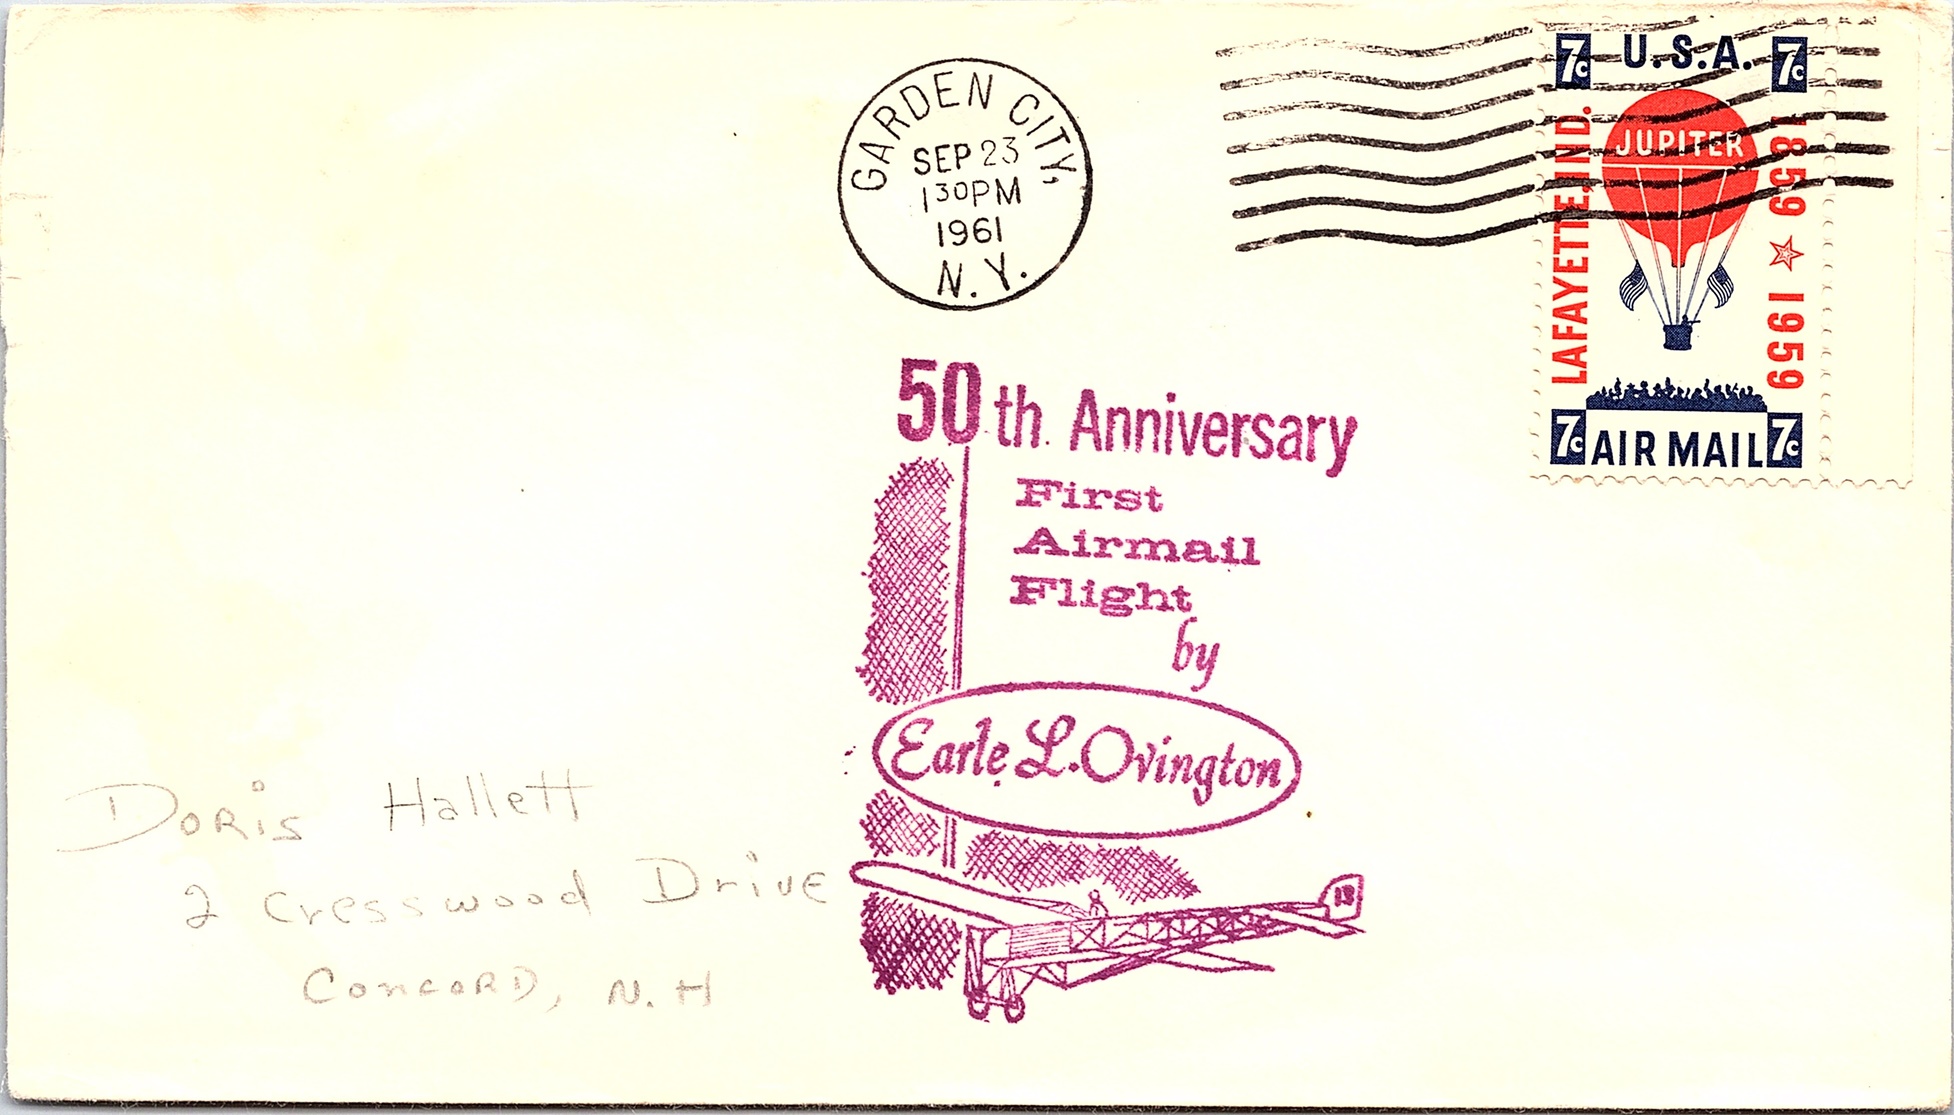 GARDEN CITY,
SEP 23
1 30 PM
1961
N.Y.
7c U.S.A. 7c
LAFAYETTE, IND.
JUPITER
1859 ☆ 1959
7c AIR MAIL 7c
50th Anniversary
First
Airmail
Flight
by
Earle L. Ovington
13
Doris Hallett
2 Cresswood Drive
Concord, N.H